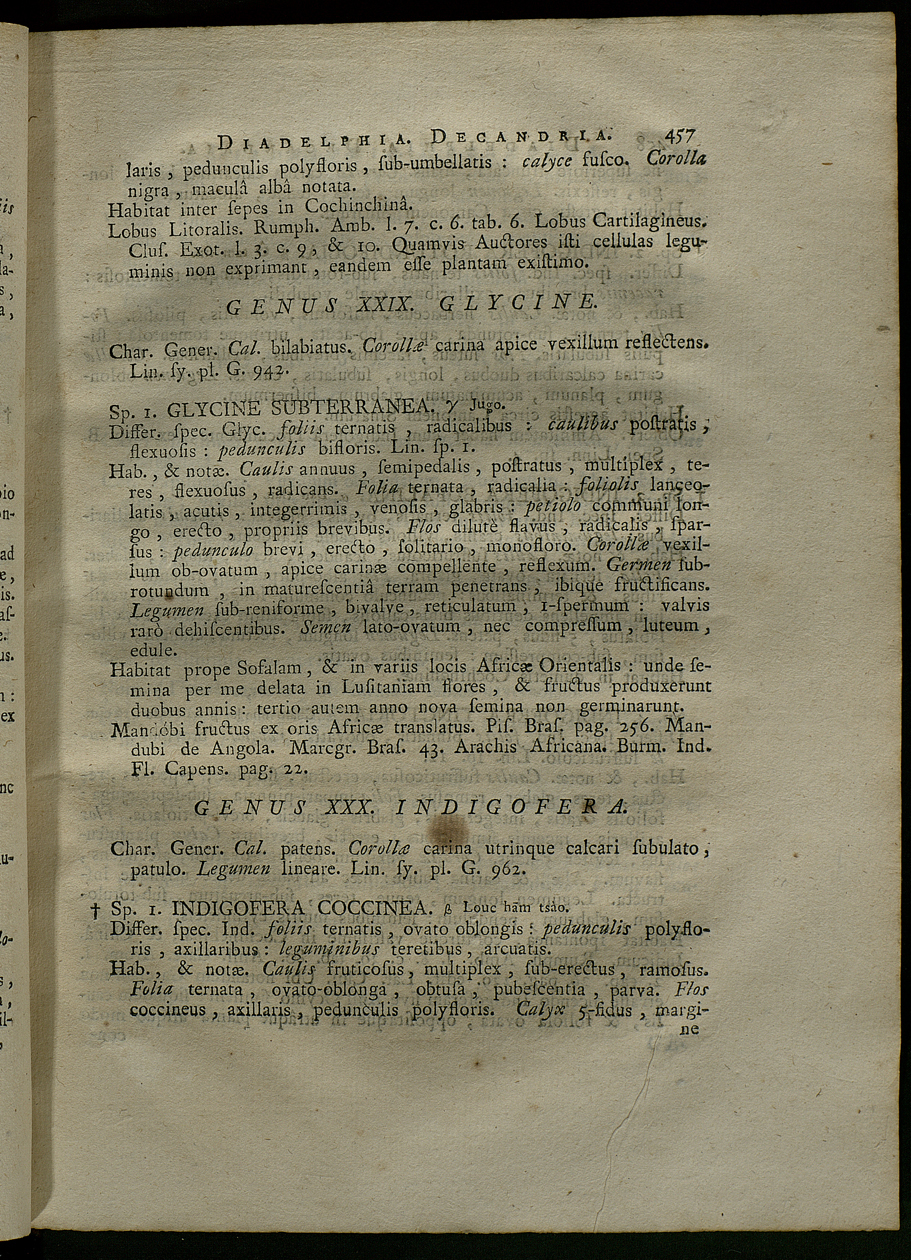 DIADELPHIA. DECANDRIA. 457
laris, pedunculis polyfloris, ſub-umbellatis : calyce fuſco. Corolla
nigra, maculâ albâ notata.
Habitat inter ſepes in Cochinchinâ.
Lobus Litoralis. Rumph. Amb. l. 7. c. 6. tab. 6. Lobus Cartilagineus.
Cluſ. Exot. l. 3. c. 9, & 10. Quamvis Auctores iſti cellulas legu-
minis non exprimant, eandem eſſe plantam exiſtimo.
GENUS XXIX. GLYCINE.
Char. Gener. Cal. bilabiatus. Corollæ carina apice vexillum reflectens.
Lin. ſy. pl. G. 942.
Sp. 1. GLYCINE SUBTERRANEA. γ Jugo.
Differ. ſpec. Glyc. foliis ternatis, radicalibus : caulibus poſtratis,
flexuoſis : pedunculis bifloris. Lin. ſp. 1.
Hab., & notæ. Caulis annuus, ſemipedalis, poſtratus, multiplex, te-
res, flexuoſus, radicans. Folia ternata, radicalia : foliolis lanceo-
latis, acutis, integerrimis, venoſis, glabris : petiolo communi lon-
go, erecto, propriis brevibus. Flos dilutè flavus, radicalis, ſpar-
ſus : pedunculo brevi, erecto, ſolitario, monofloro. Corollæ vexil-
lum ob-ovatum, apice carinæ compellente, reflexum. Germen ſub-
rotundum, in matureſcentiâ terram penetrans, ibique fructificans.
Legumen ſub-reniforme, bivalve, reticulatum, 1-ſpermum : valvis
rarò dehiſcentibus. Semen lato-ovatum, nec compreſſum, luteum,
edule.
Habitat prope Sofalam, & in variis locis Africæ Orientalis : unde ſe-
mina per me delata in Luſitaniam flores, & fructus produxerunt
duobus annis : tertio autem anno nova ſemina non germinarunt.
Mandobi fructus ex oris Africæ translatus. Piſ. Braſ. pag. 256. Man-
dubi de Angola. Marcgr. Braſ. 43. Arachis Africana. Burm. Ind.
Fl. Capens. pag. 22.
GENUS XXX. INDIGOFERA.
Char. Gener. Cal. patens. Corollæ carina utrinque calcari ſubulato,
patulo. Legumen lineare. Lin. ſy. pl. G. 962.
† Sp. 1. INDIGOFERA COCCINEA. β Louc hām tsào.
Differ. ſpec. Ind. foliis ternatis, ovato oblongis : pedunculis polyflo-
ris, axillaribus : leguminibus teretibus, arcuatis.
Hab., & notæ. Caulis fruticoſus, multiplex, ſub-erectus, ramoſus.
Folia ternata, ovato-oblonga, obtuſa, pubeſcentia, parva. Flos
coccineus, axillaris, pedunculis polyfloris. Calyx 5-fidus, margi-
ne